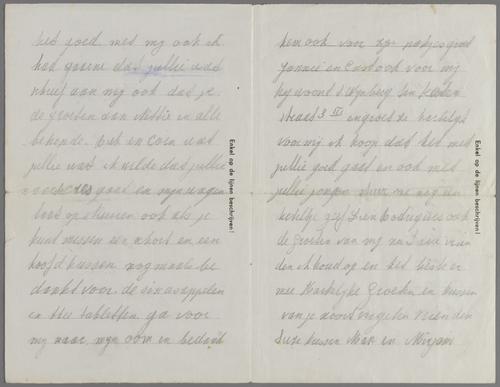 het goed met mij ook ik
had gaarne dat jullie wat
schreef aan mij ook dat je
de groeten aan Mittie en alle
bekende. Eet en Corn wat
jullie wat ik wilde dat jullie
gaat en mijn wagen
laat op sturen ook als je
kunt missen een short en een
hoofd kussen nog maals be
dankt voor de sinasappelen
en thee tabletten ga voor
mij naar mijn oom en bedankt
Enkel op de lijnen beschrijven!
hem ook voor zijn pakjes groet
Jannie en ook voor mij
hij woont Swijnberg
straat 3 III en groet de hartelijk
voor mij ik hoop dat het met
jullie goed gaat en ook met
jullie jongen
Sien Rodrigues ook
de groeten van mij
den ik houd op en het beste er
mee Hartelijke Groeten en kussen
van je nooit vergeten vrienden
kussen Max en Mirjam
Enkel op de lijnen beschrijven!